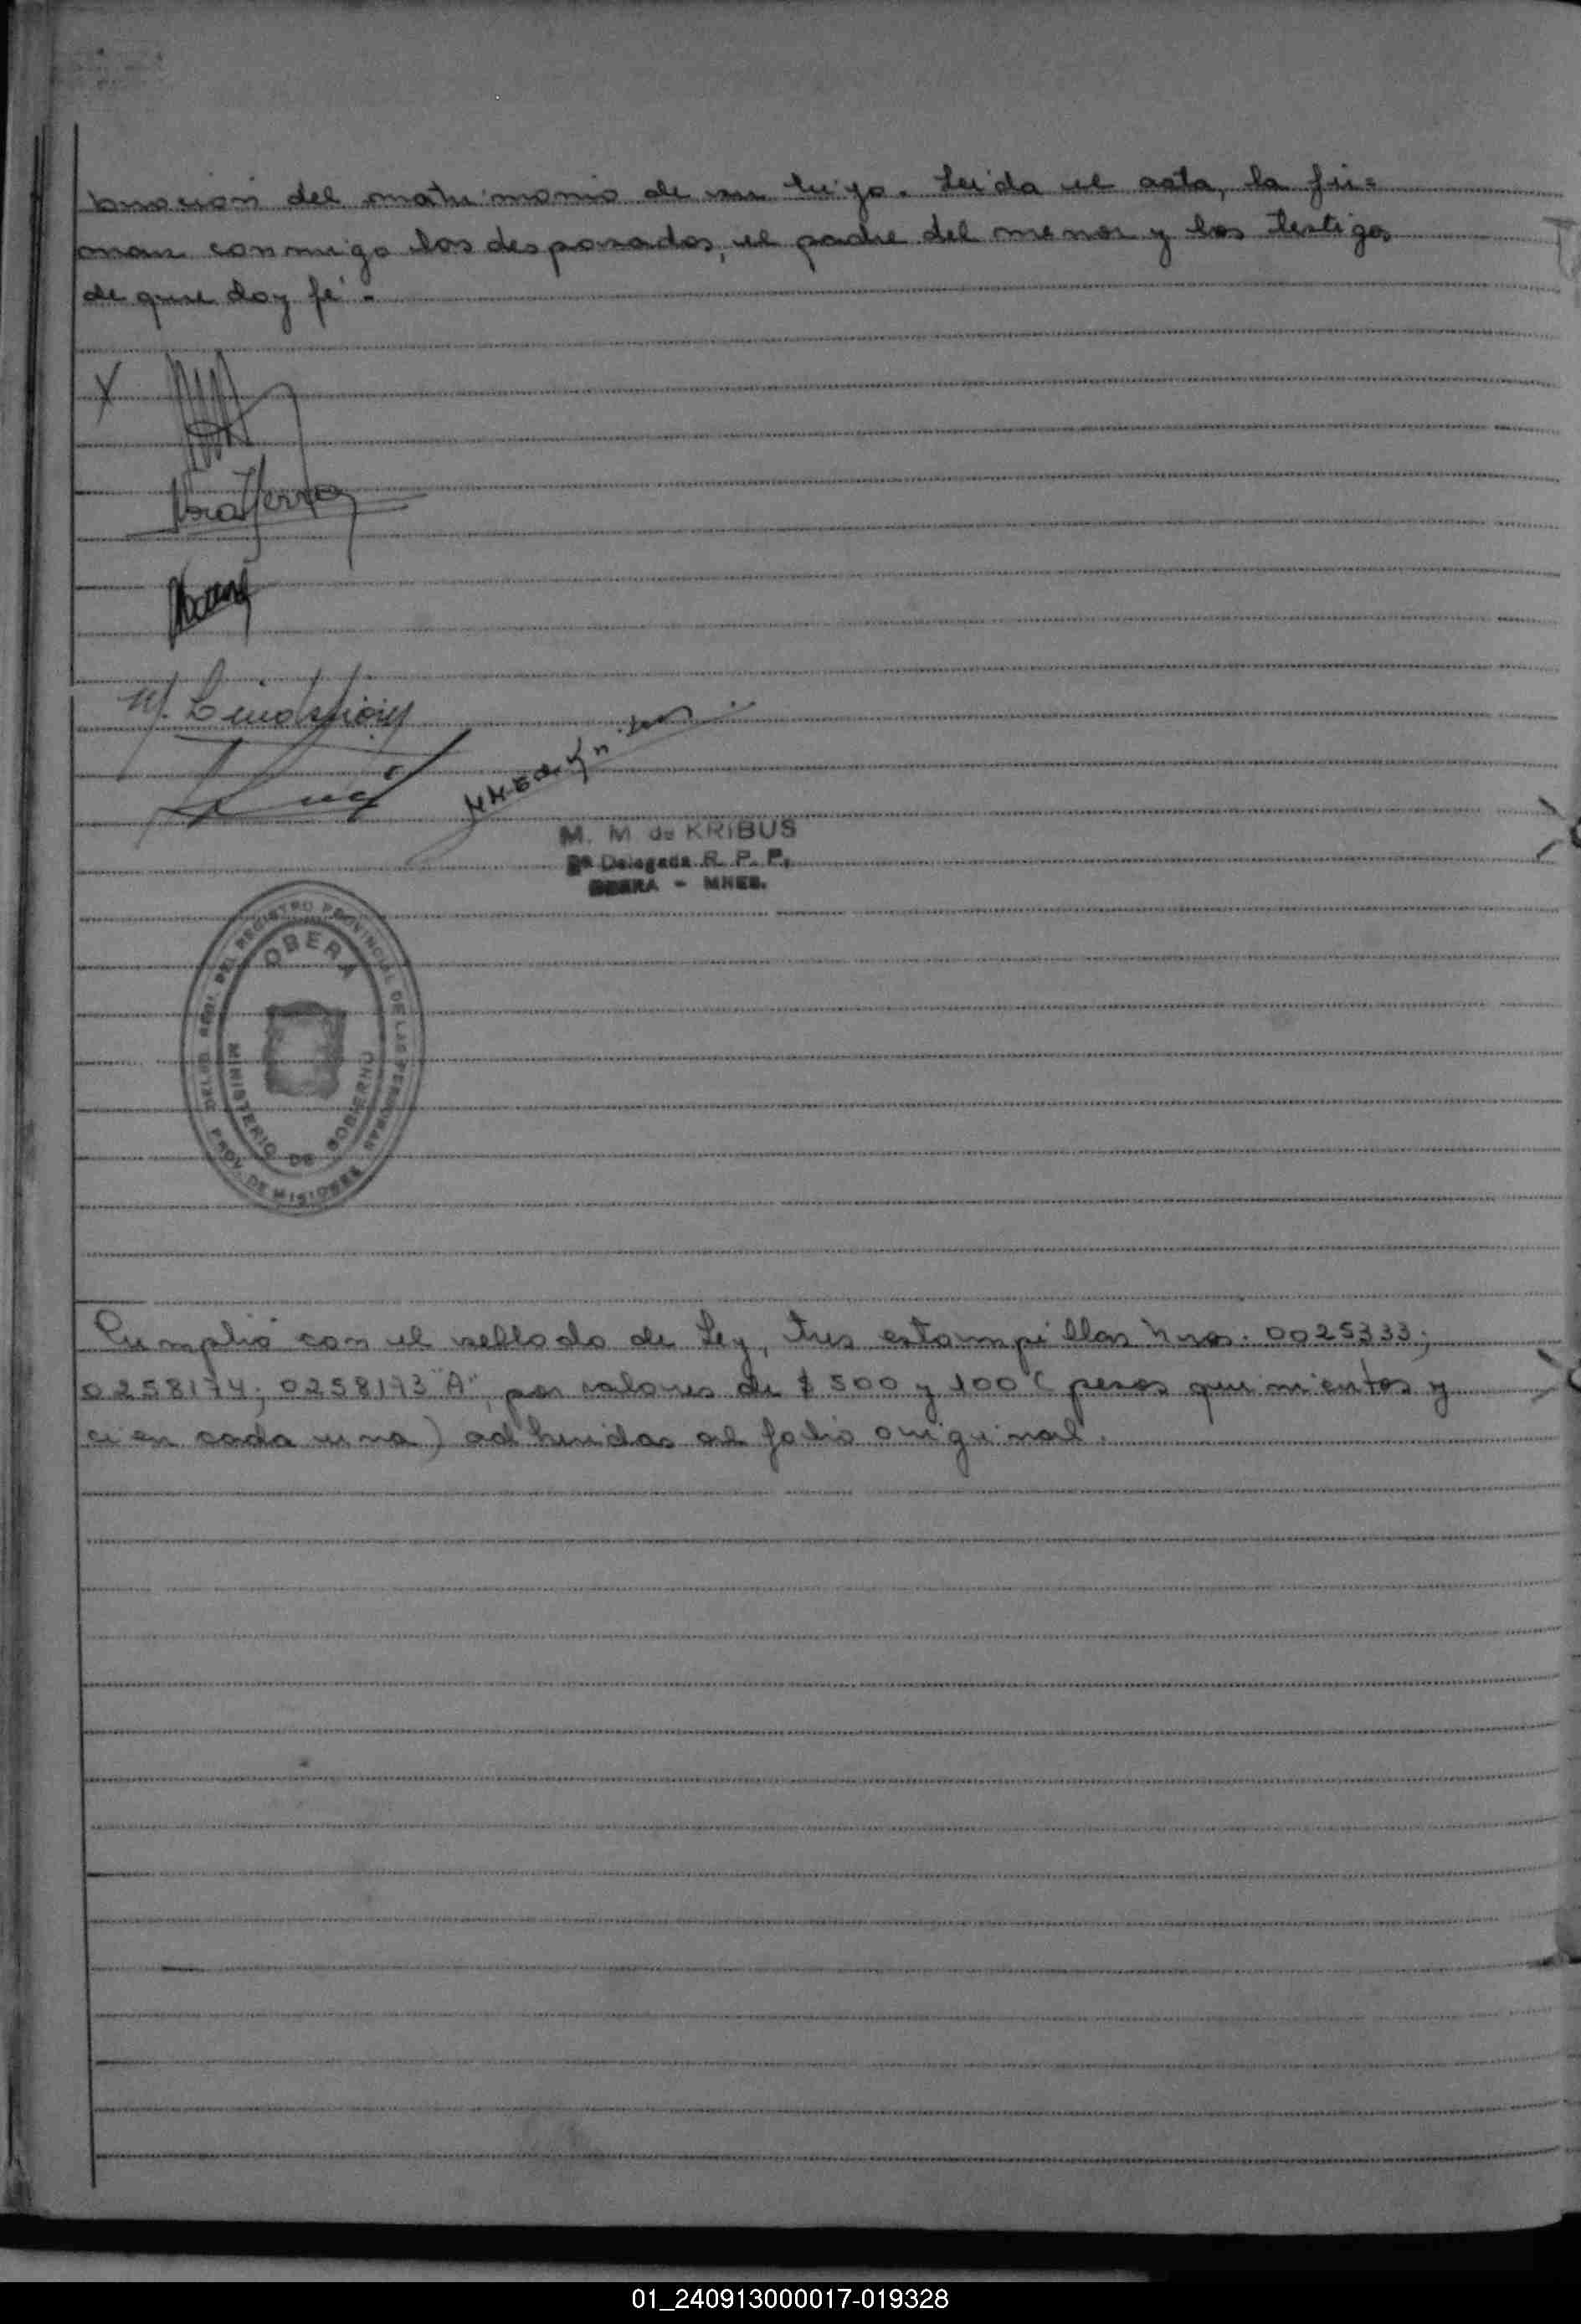 bración del matrimonio de su hijo. Leida el acta, la fir=
man conmigo los desposados, el padre del menor y los testigos
de que doy fé.-
X
M. M de KRIBUS
Delegada R. P. P.
OBERA - MNES.
DEL REGISTRO PROVINCIAL DE LAS PERSONAS
OBERA
MINISTERIO DE GOBIERNO
PROV. DE MISIONES
Cumplió con el sellado de Ley, tres estampillas Nros. 0025333;
0258174; 0258173 "A", por valores de $ 500 y 100 ( pesos quinientos y
cien cada una) adheridas al folio original.
01_240913000017-019328